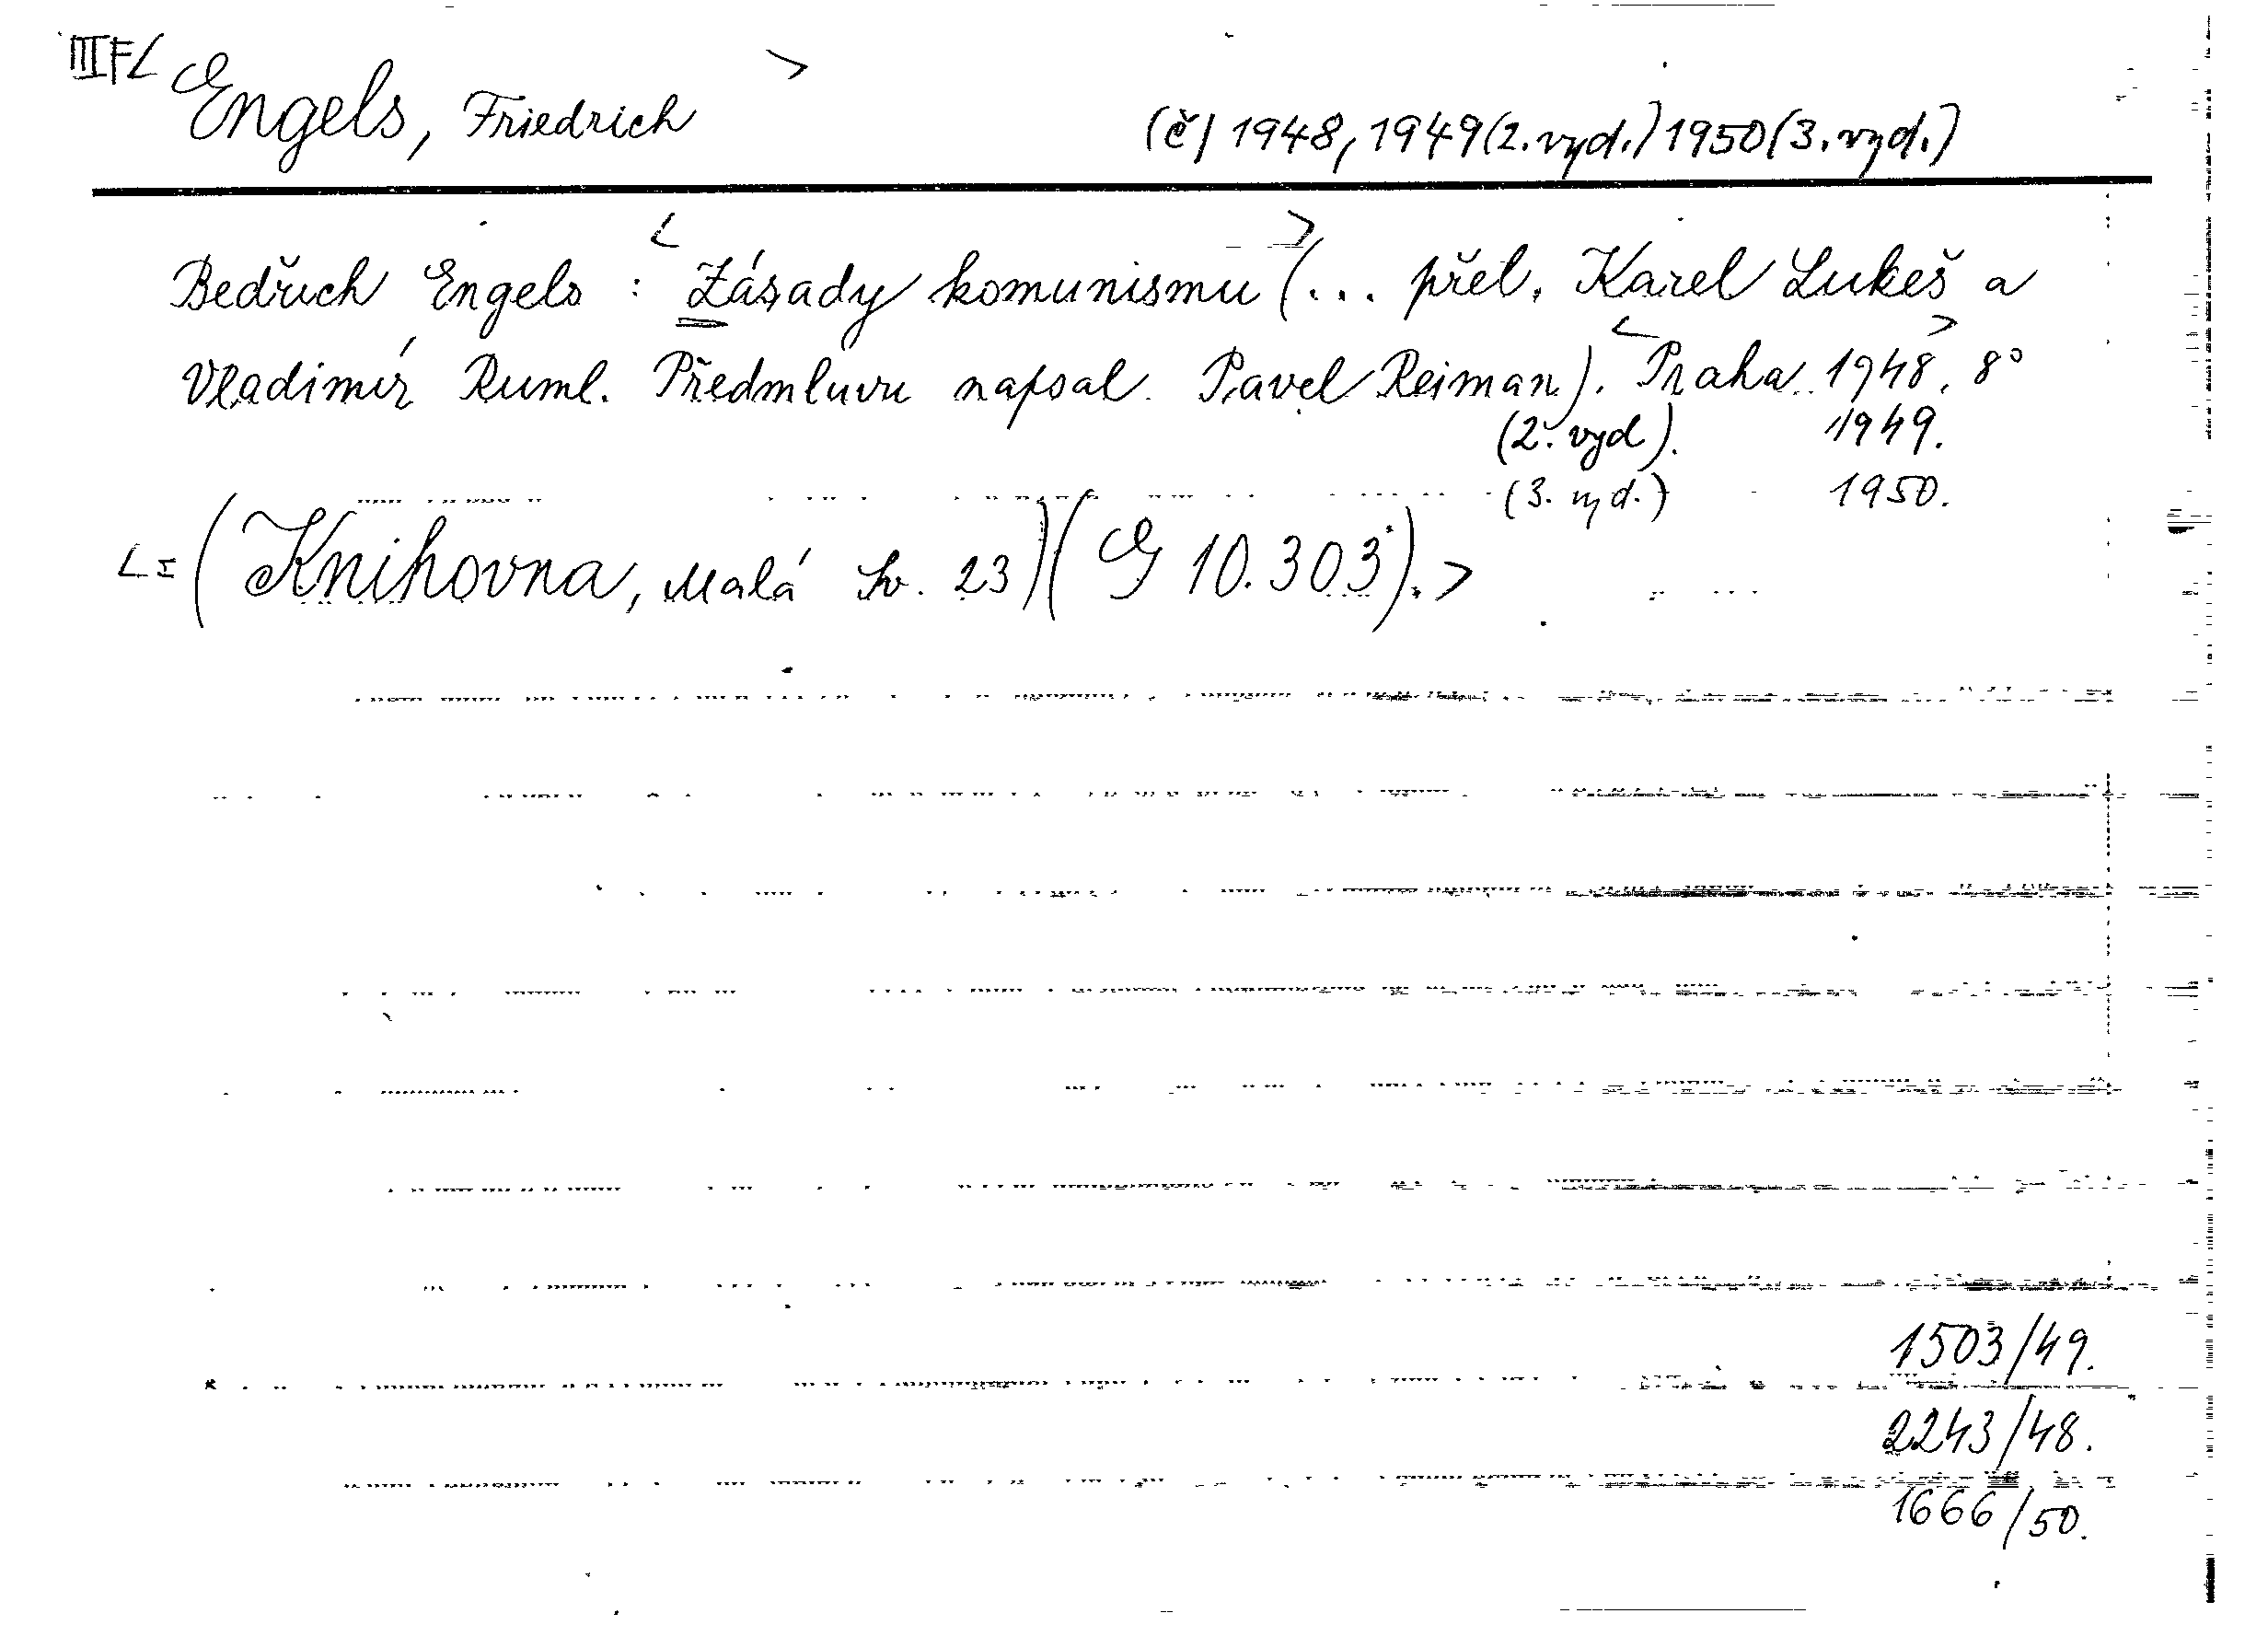 IIIF< Engels, Friedrich > (č) 1948, 1949 (2. vyd.) 1950 (3. vyd.)
Bedřich Engels : <Zásady komunismu> (... přel. Karel Lukeš a
Vladimír Ruml. Předmluvu napsal Pavel Reiman). <Praha 1948>. 8°
(2. vyd). 1949.
(3. vyd.) 1950.
<= (Knihovna, Malá Sv. 23) (G 10.303). >
1503/49.
2243/48.
1666/50.